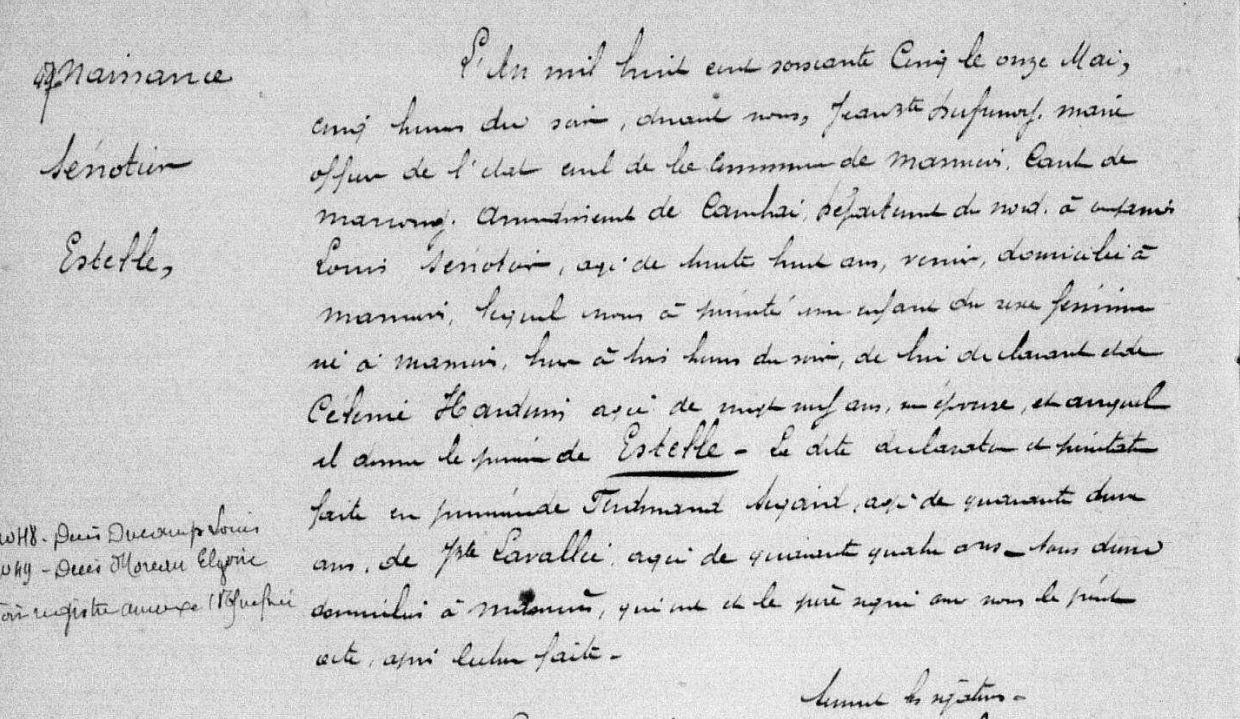 47 Naissance
Sénotier
Estelle,
L'An mil huit cent soixante Cinq le onze Mai,
cinq heures du soir, devant nous, Jean Bte maire
officier de l'état civil de la Commune de Masnières. Cant de
Marcoing. Arrondissement de Cambrai, Département du Nord. à comparu
Louis Sénotier, agé de trente huit ans, domicilié à
Masnières, lequel nous à présenté un enfant du sexe féminin
né à Masnières, hier à trois heures du soir, de lui déclarant et de
Célénie agée de vingt neuf ans, son épouse, et auquel
il donne le prénom de Estelle - Les dite déclaration et présentation
faite en présence de Ferdinand Segard, agé de quarante deux
ans, de Jh Bte Lavallée, agé de quarante quatre ans - tous deux
domiciliés à Masnières, qui ont et le père signé avec nous le présent
acte, après lecture faite -
Suivent les signatures -
No 48 - Décès Ducamp Louis
No 49 - Décès Moreau
Voir registre annexe